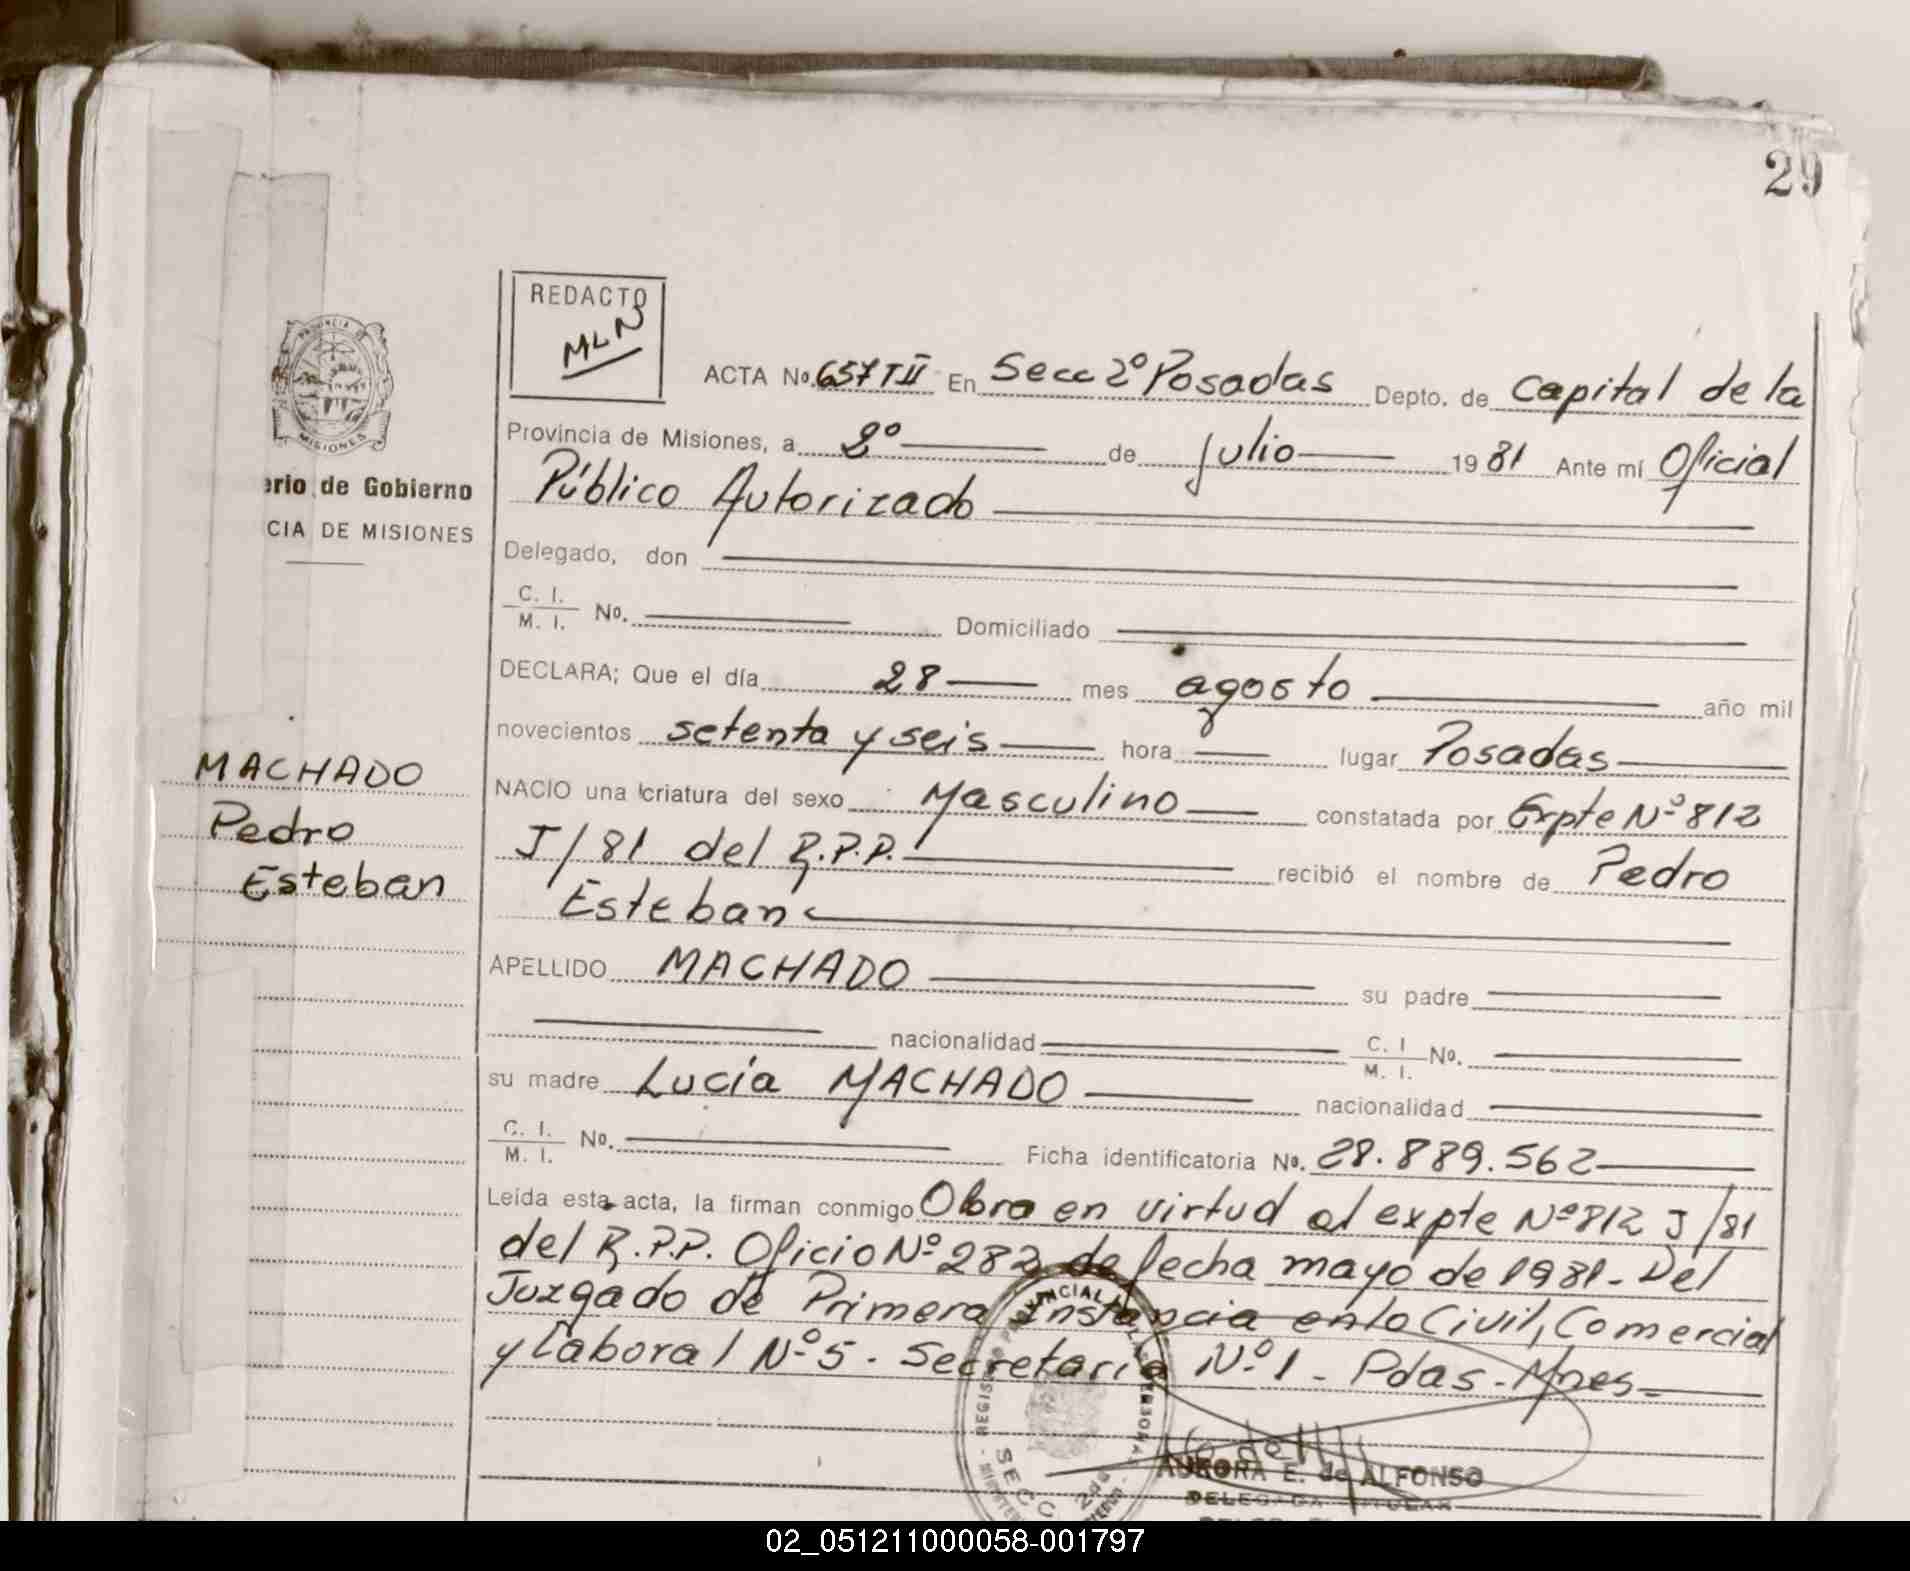 29
REDACTO
MLN
PROVINCIA DE
MISIONES
erio de Gobierno
CIA DE MISIONES
MACHADO
Pedro
Esteban
ACTA No. 657 T II En Secc 2º Posadas Depto. de Capital de la
Provincia de Misiones, a 2º de Julio 1981 Ante mí Oficial
Público Autorizado
Delegado, don
C. I.
M. I. No. Domiciliado
DECLARA; Que el día 28 mes agosto año mil
novecientos setenta y seis hora lugar Posadas
NACIO una criatura del sexo Masculino constatada por Expte Nº 812
J/81 del R.P.P. recibió el nombre de Pedro
Esteban
APELLIDO MACHADO su padre
nacionalidad C. I. M. I. No.
su madre Lucia MACHADO nacionalidad
C. I. M. I. No. Ficha identificatoria No. 28.889.562
Leída esta acta, la firman conmigo Obra en virtud al expte Nº 812 J/81
del R.P.P. Oficio Nº 282 de fecha mayo de 1981- Del
Juzgado de Primera Instancia en lo Civil, Comercial
y Laboral Nº 5. Secretaria Nº 1 - Pdas - Mnes-
SECC
AURORA E. de ALFONSO
DELEGADA TITULAR
02_051211000058-001797